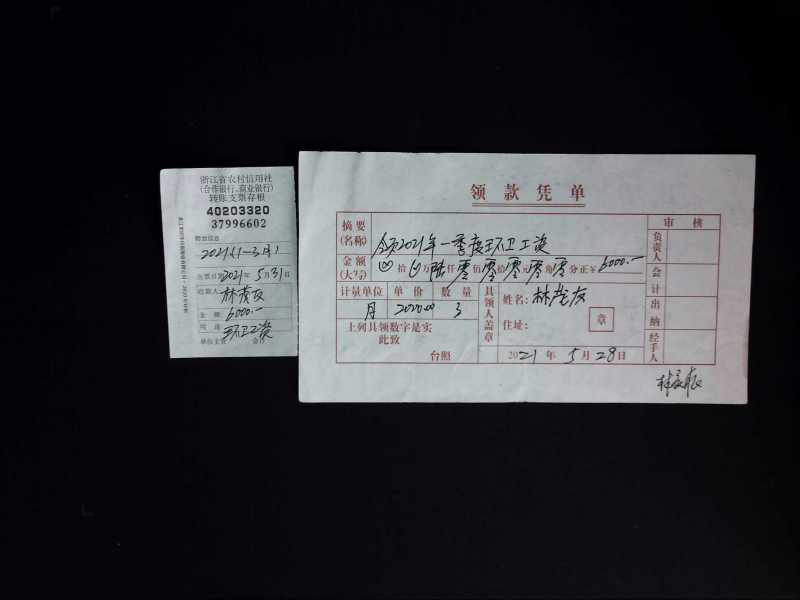 浙江省农村信用社
(合作银行、商业银行)
转账支票存根
40203320
37996602
附加信息
2021(1-3月)
出票日期2021年5月31日
收款人:林茂友
金额:6000.-
用途:环卫工资
单位主管 会计
领款凭单
摘要(名称) 领2021年一季度环卫工资
金额(大写) 拾 万陆仟零佰零拾零元零角零分正¥6000.-
计量单位 单价 数量
月 2000.00 3
上列具领数字是实
此致
台照
具领人盖章
姓名:林茂友
住址:
章
2021年5月28日
审核
负责人
会计
出纳
经手人